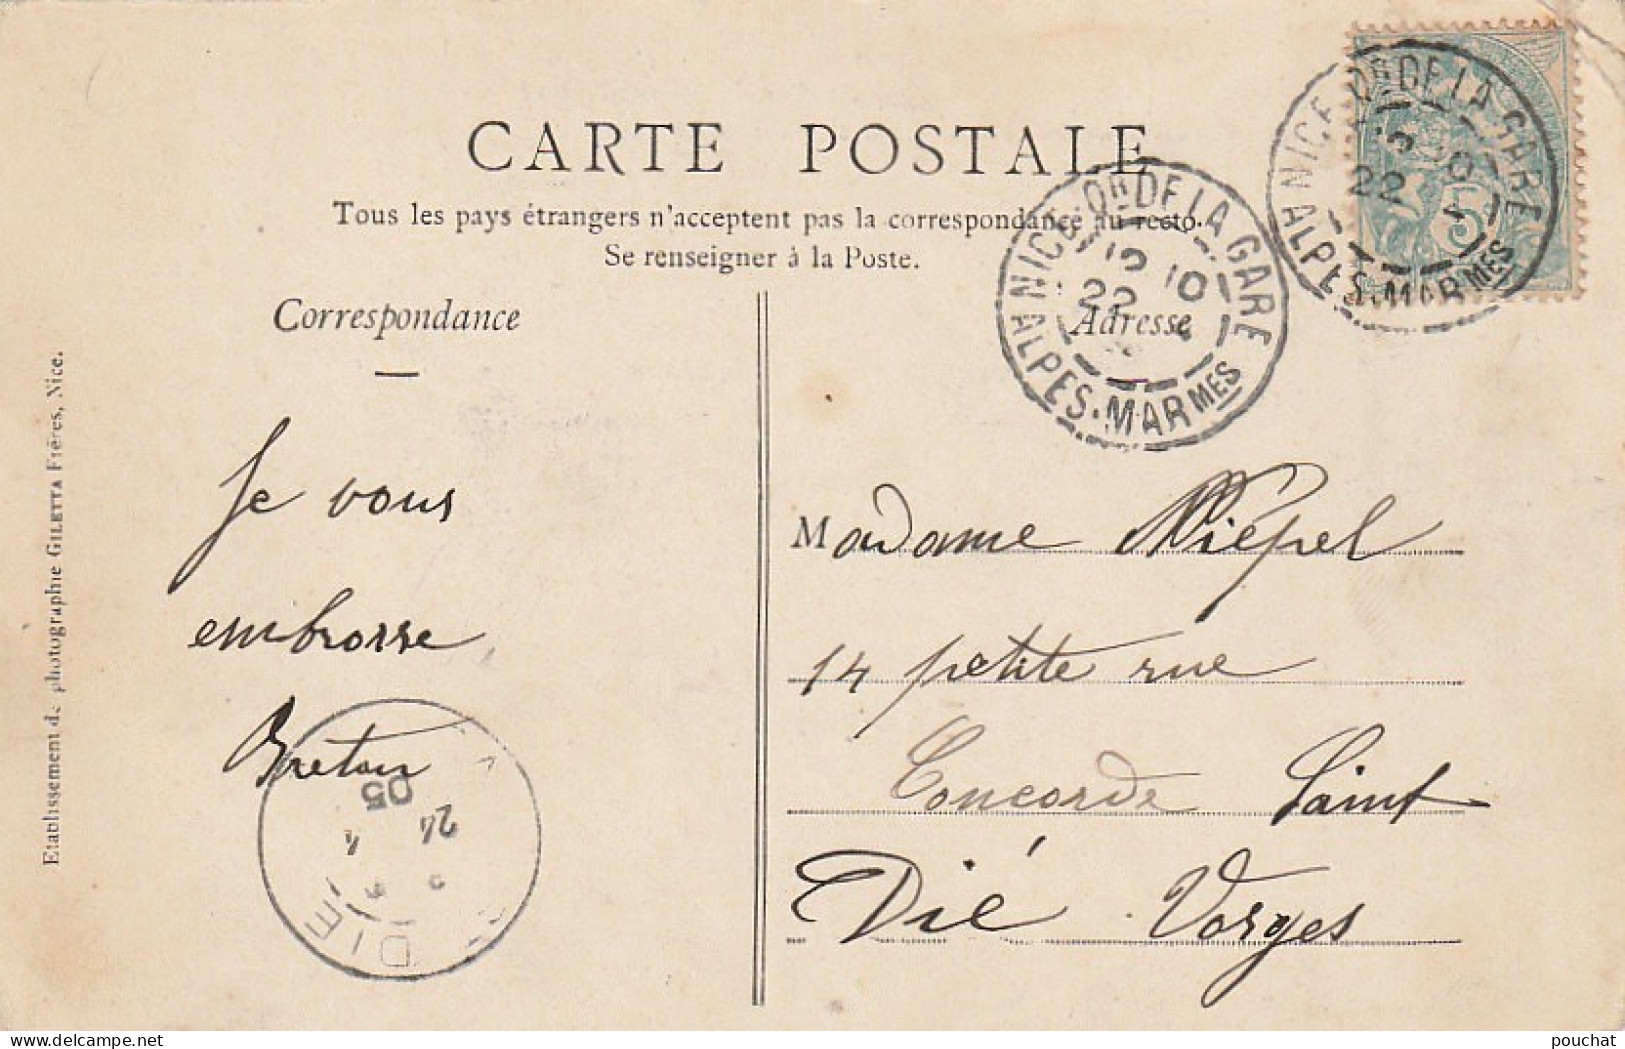 CARTE POSTALE
Tous les pays étrangers n'acceptent pas la correspondance au recto.
Se renseigner à la Poste.
Correspondance
Adresse
NICE Qr DE LA GARE
22
ALPES-MARMES
5
NICE Qr DE LA GARE
10
22
ALPES-MARMES
Je vous
embrasse
Madame
14 petite rue
Concorde Saint
Dié Vosges
DIE
24 4
05
Etablissement de photographie GILETTA Frères, Nice.
pouchat